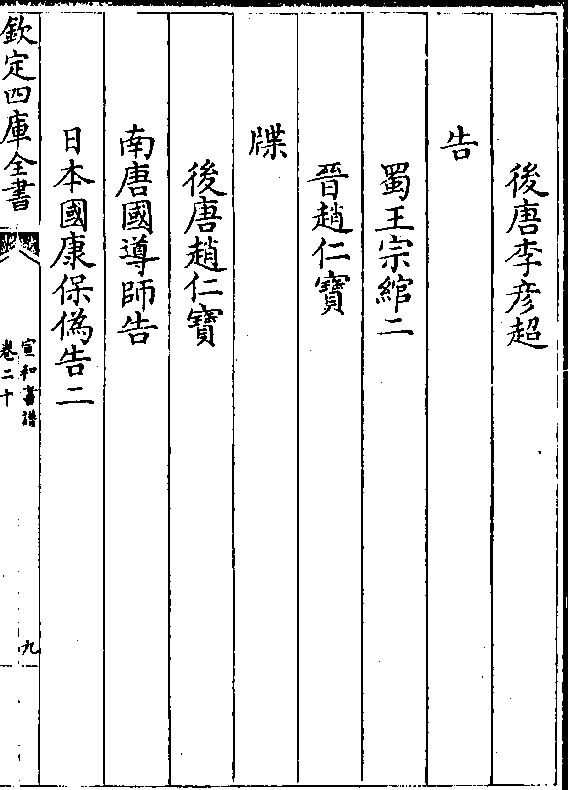 後唐李彦超
告
蜀王宗綰二
晉趙仁寶
牒
後唐趙仁寶
南唐國導師告
日本國康保偽告二
欽定四庫全書
宣和書譜
卷二十
九